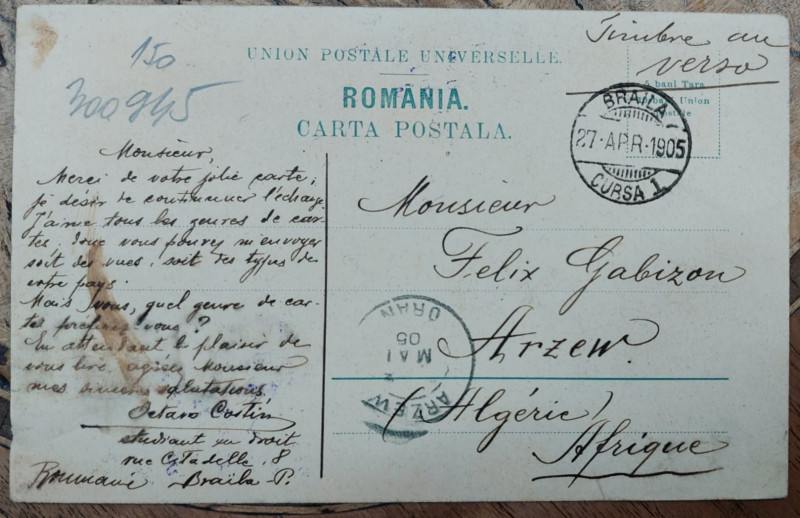 150
300945
UNION POSTALE UNIVERSELLE.
ROMÂNIA.
CARTA POSTALA.
Timbre au
verso
5 bani Tara
Union
BRAILA
27·APR·1905
CURSA 1
Monsieur,
Merci de votre jolie carte;
je désir de continuner l'échange.
J'aime tous les genres de car-
tes; donc vous pouvez m'envoyer
soit des vues, soit des types de
votre pays.
Mais vous, quel genre de car-
tes preferez vous?
En attendant le plaisir de
vous lire, agréez Monsieur
mes sinceres salutations
Octave Costin
etudiant en droit
rue Citadelle, 8
Roumanie Braila-P.
Monsieur
Felix Gabizon
Arzew.
(Algérie)
Afrique
ARZEW
MAI
05
ORAN